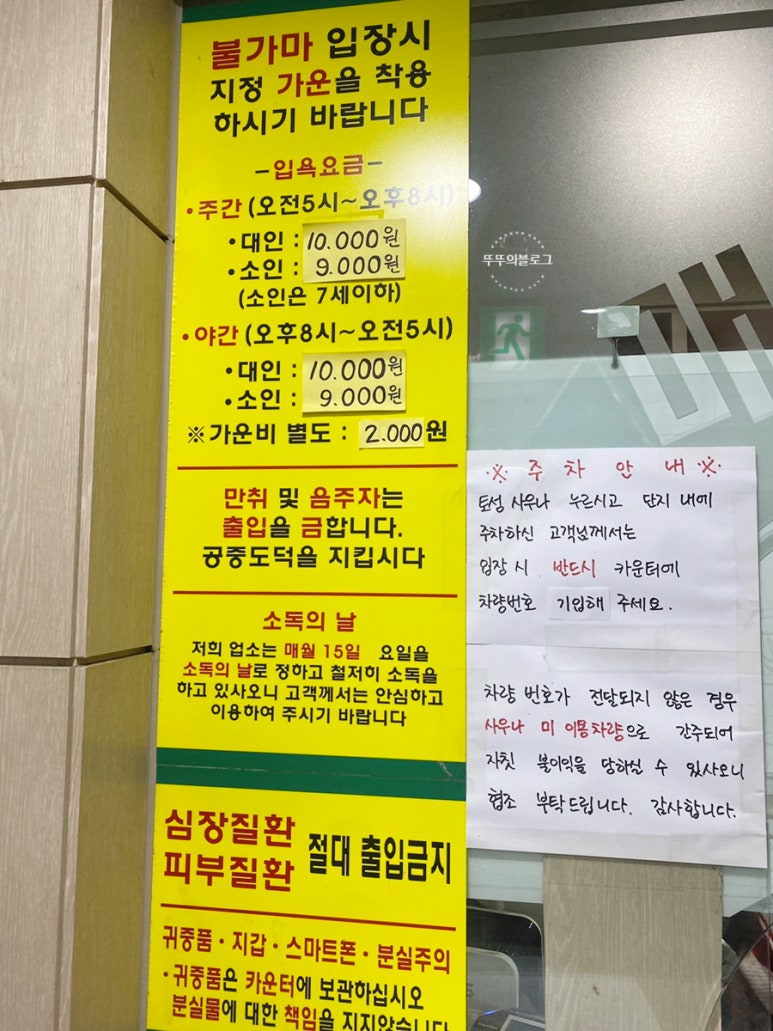 불가마 입장시
지정 가운을 착용
하시기 바랍니다
-입욕요금-
•주간 (오전5시~오후8시)
•대인 : 10.000원
•소인 : 9.000원
(소인은 7세이하)
•야간 (오후8시~오전5시)
•대인 : 10.000원
•소인 : 9.000원
※가운비 별도 : 2.000원
만취 및 음주자는
출입을 금합니다.
공중도덕을 지킵시다
소독의 날
저희 업소는 매월 15일 요일을
소독의 날로 정하고 철저히 소독을
하고 있사오니 고객께서는 안심하고
이용하여 주시기 바랍니다
심장질환
피부질환
절대 출입금지
귀중품·지갑·스마트폰·분실주의
•귀중품은 카운터에 보관하십시오
분실물에 대한 책임을 지지않습니다
뚜뚜의블로그
※ 주차 안내 ※
토성 사우나 누르시고 단지 내에
주차하신 고객님께서는
입장 시 반드시 카운터에
차량번호 기입해 주세요.
차량 번호가 전달되지 않은 경우
사우나 미 이용차량으로 간주되어
자칫 불이익을 당하실 수 있사오니
협조 부탁드립니다. 감사합니다.